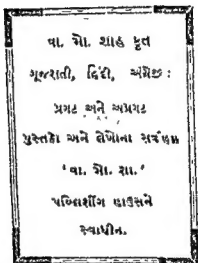 વા. મો. શાહ કૃત
ગૂજરાતી, હિંદી, અંગ્રેજી :
પ્રગટ અને અપ્રગટ
પુસ્તકો અને લેખોના સર્વહક્ક
‘ વા. મો. શા. ’
પબ્લિશીંગ હાઉસને
સ્વાધીન.